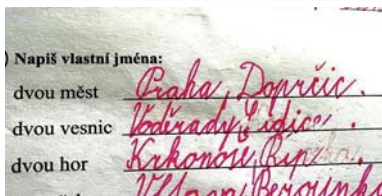 ) Napiš vlastní jména:
dvou měst Praha, Doprčic.
dvou vesnic Voděrady, Lidice.
dvou hor Krkonoše, Říp
Vltava, Berounka